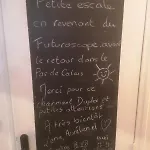 Petite escale
en revenant du
Futuroscope, avant
le retour dans le
Pas de Calais
Merci pour ce
charmant Duplex et
petites attentions
A très bientôt